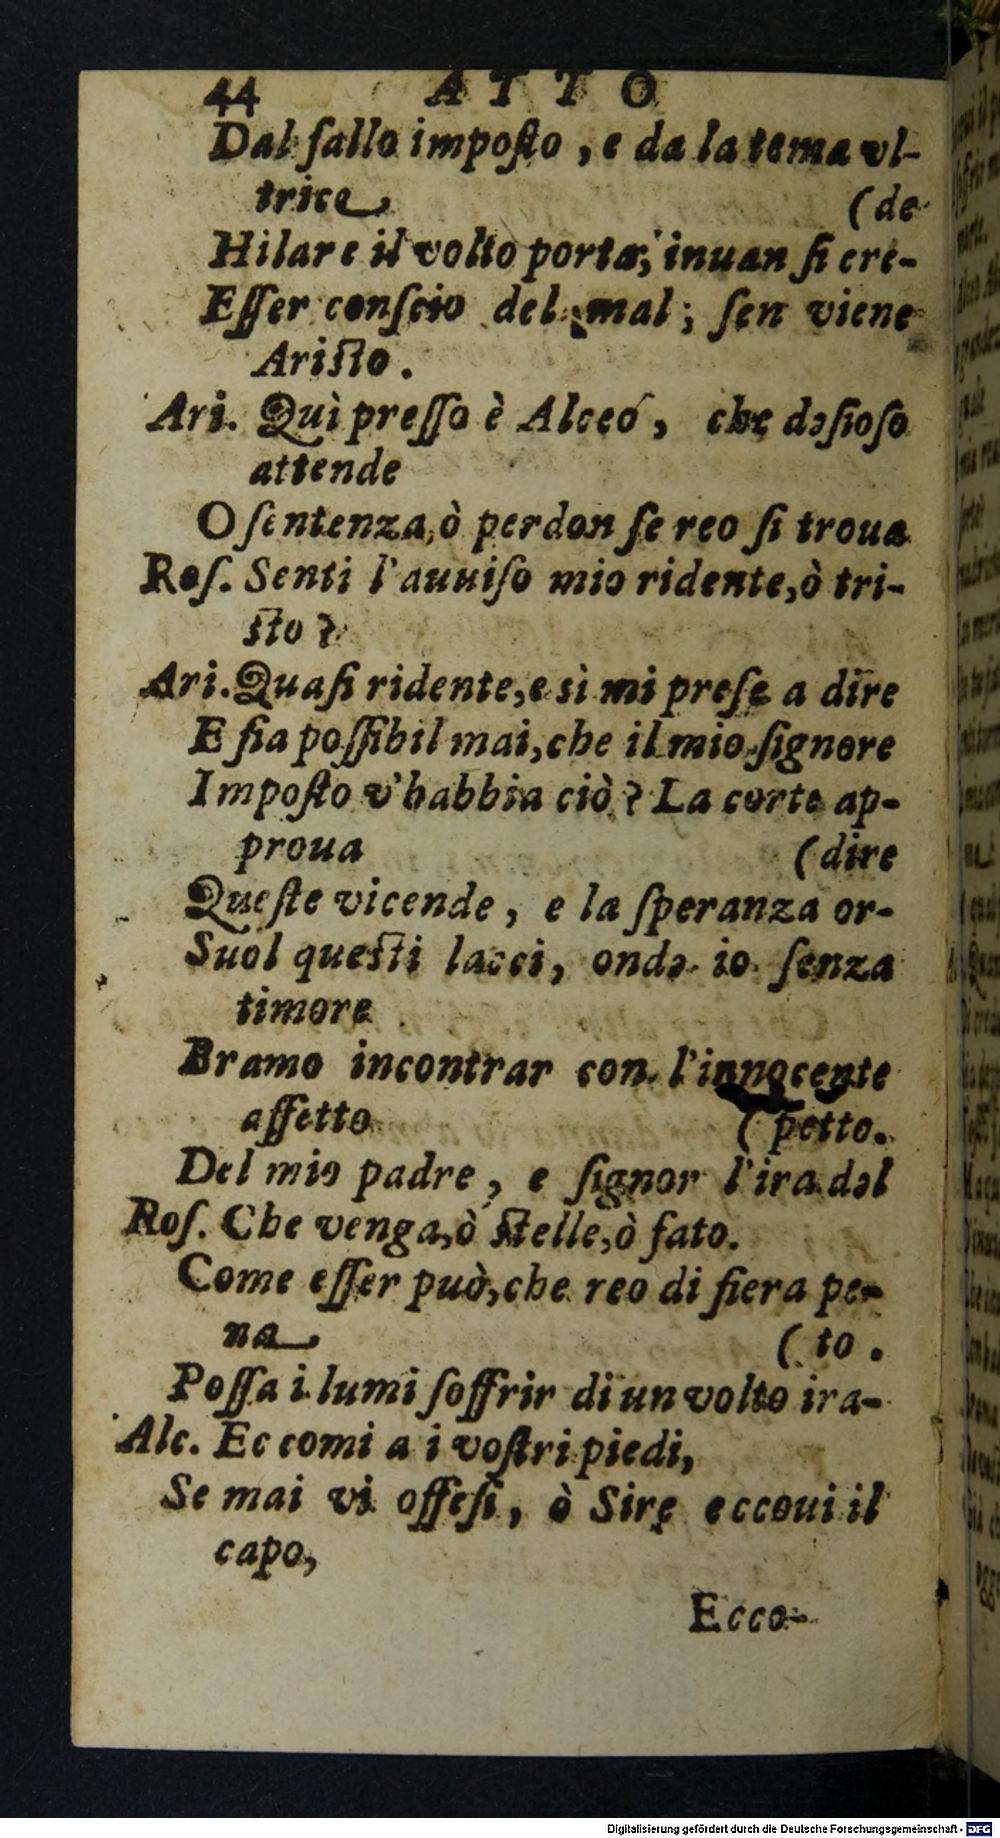 44 ATTO
Dal fallo imposto, e da la tema vl-
trice (de
Hilare il volto porta, inuan si cre-
Esser conscio del mal; sen viene
Aristo.
Ari. Quì presso è Alceo, che desioso
attende
O sentenza, ò perdon se reo si troua
Ros. Senti l'auuiso mio ridente, ò tri-
sto?
Ari. Quasi ridente, e sì mi prese a dire
E fia possibil mai, che il mio signore
Imposto v'habbia ciò? La corte ap-
proua (dire
Queste vicende, e la speranza or-
Suol questi lacci, onde io senza
timore
Bramo incontrar con l'innocente
affetto (petto.
Del mio padre, e signor l'ira del
Ros. Che venga, ò stelle, ò fato.
Come esser può, che reo di fiera pe-
na (to.
Possa i lumi soffrir di un volto ira-
Alc. Eccomi a i vostri piedi,
Se mai vi offesi, ò Sire eccoui il
capo,
Ecco-
Digitalisierung gefördert durch die Deutsche Forschungsgemeinschaft - DFG